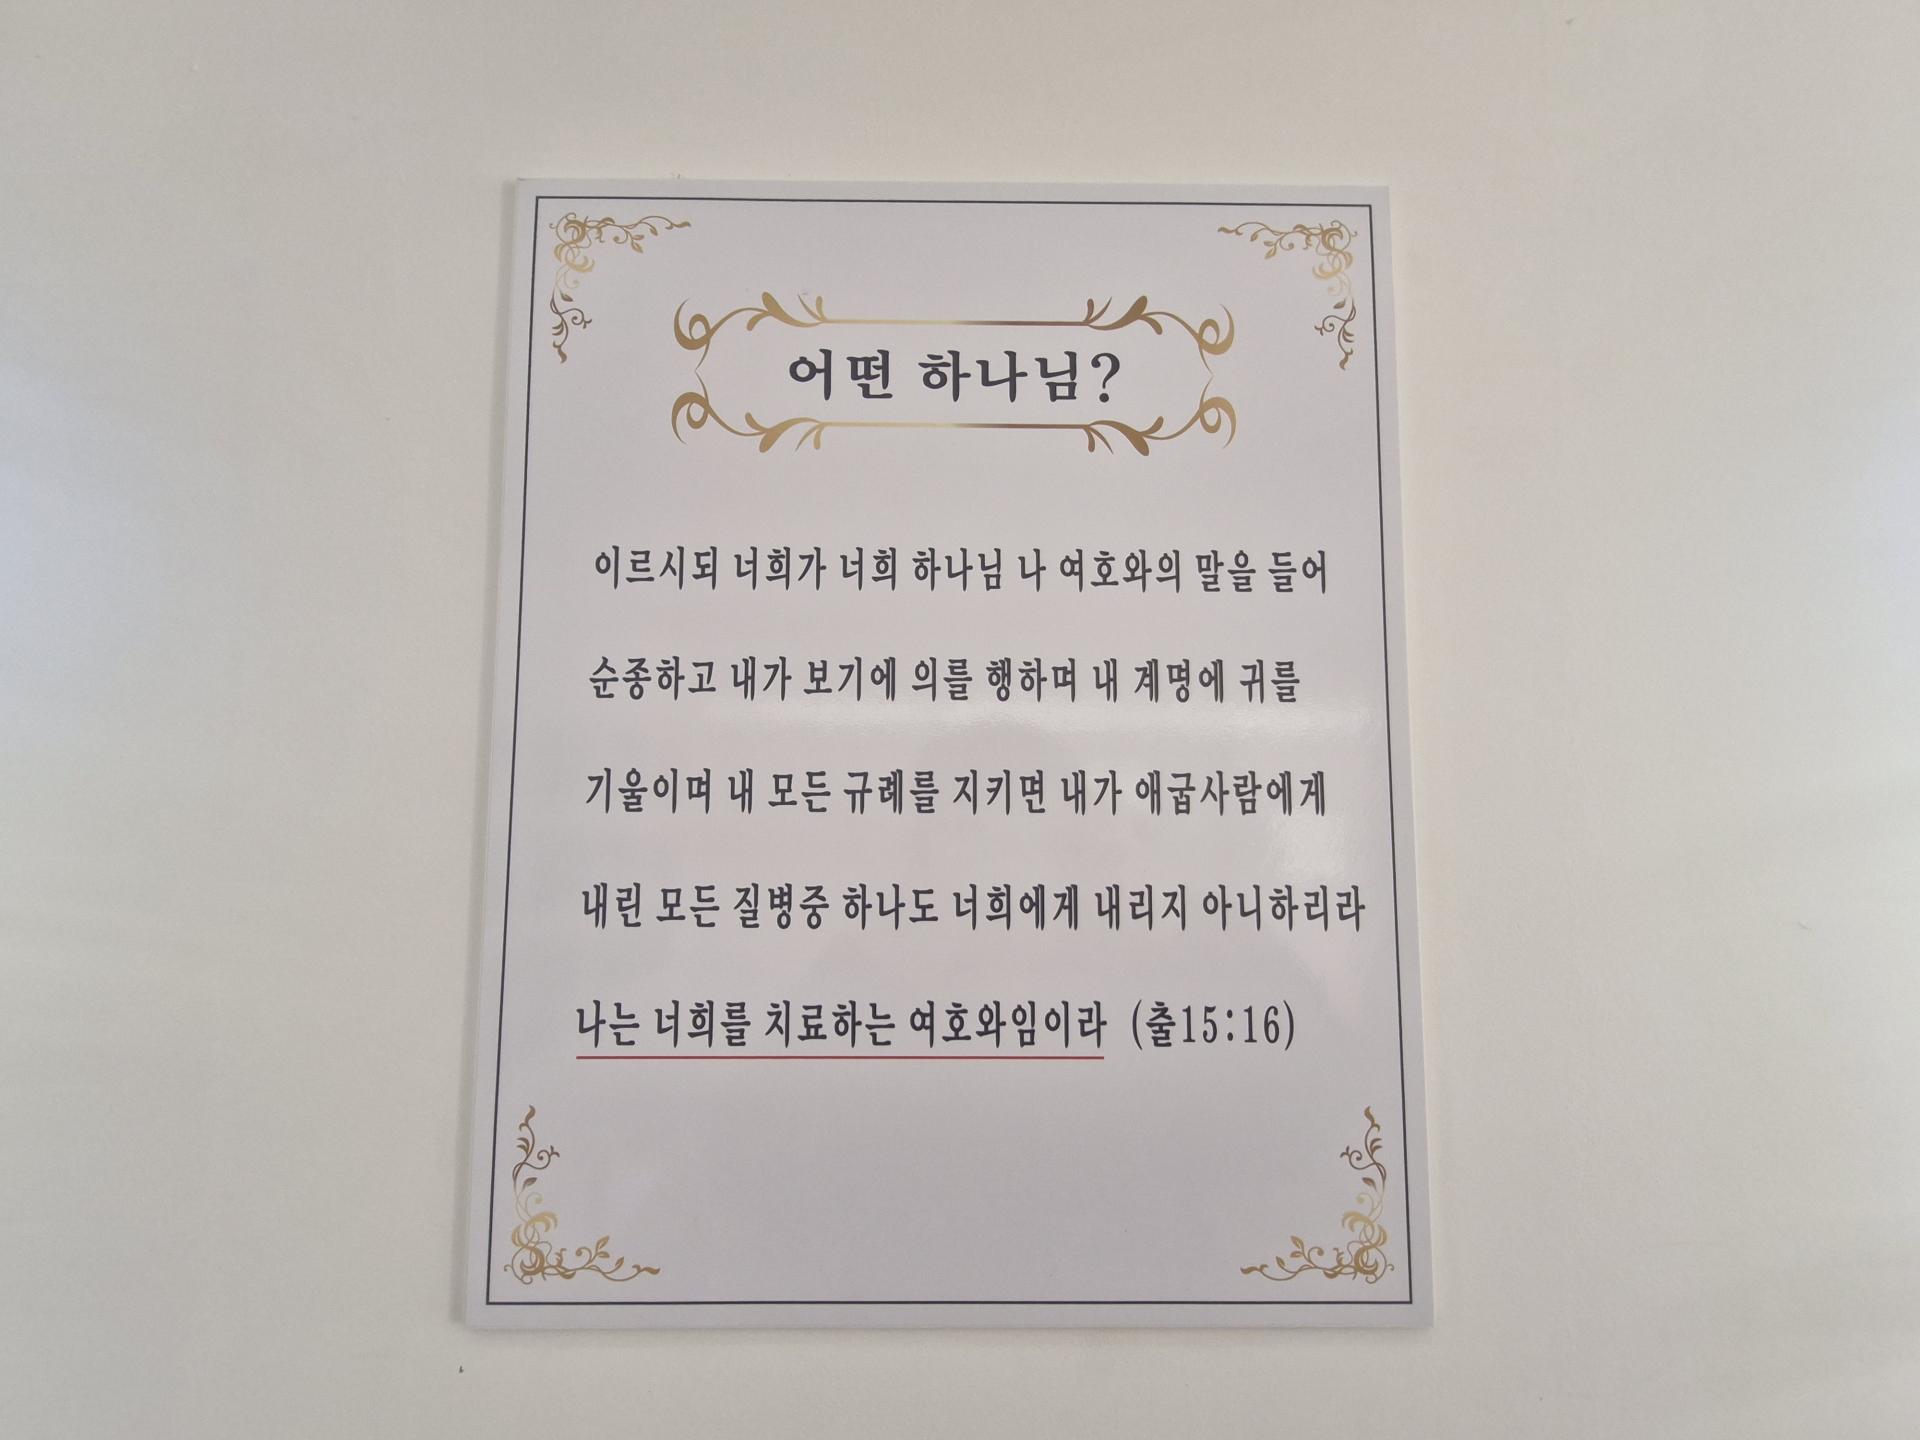 어떤 하나님?
이르시되 너희가 너희 하나님 나 여호와의 말을 들어
순종하고 내가 보기에 의를 행하며 내 계명에 귀를
기울이며 내 모든 규례를 지키면 내가 애굽사람에게
내린 모든 질병중 하나도 너희에게 내리지 아니하리라
나는 너희를 치료하는 여호와임이라 (출15:16)